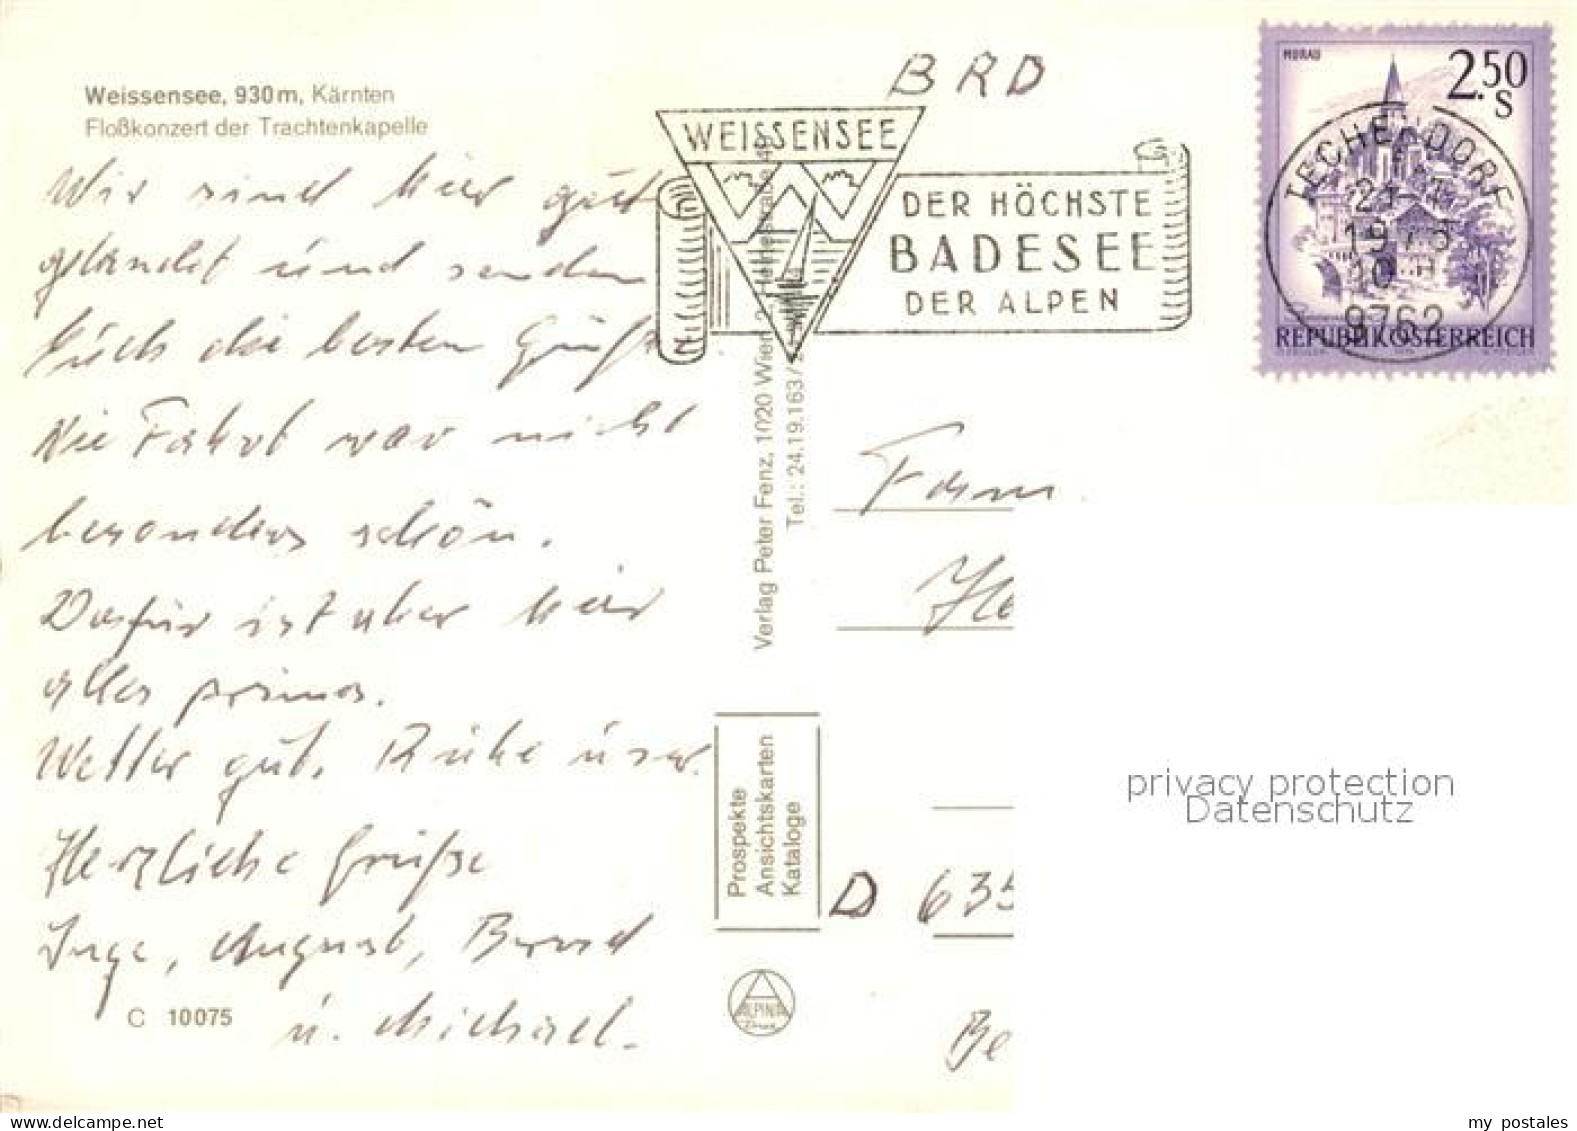 Weissensee, 930m, Kärnten
Floßkonzert der Trachtenkapelle
Wir sind hier gut
gelandet und senden
Euch die besten Grüße.
Die Fahrt war nicht
besonders schön.
Dafür ist aber hier
alles prima.
Wetter gut. Ruhe
Herzliche Grüße
Inge, August, Bernd
u. Michael.
C 10075
BRD
WEISSENSEE
DER HÖCHSTE
BADESEE
DER ALPEN
MURAU
2.50
S
TECHENDORF
9762
REPUBLIK ÖSTERREICH
Verlag Peter Fenz, 1020 Wien
Tel.: 24.19.163/
Prospekte
Ansichtskarten
Kataloge
ALPINA
Druck
Fam
He
D 635
Be
privacy protection
Datenschutz
my postales